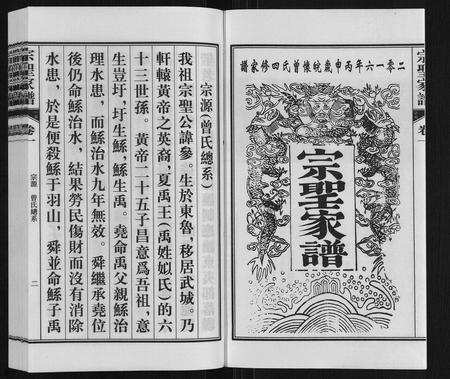 二零一六年丙申歲皖懷曾氏四修家譜
宗聖家譜
宗聖家譜
卷一
宗聖家譜
卷一
宗源 曾氏總系
二
宗源(曾氏總系)
我祖宗聖公諱參。生於東魯，移居武城。乃
軒轅黃帝之英裔，夏禹王(禹姓姒氏)的六
十三世孫。黃帝二十五子昌意爲吾祖，意
生豈圩，圩生鯀，鯀生禹。堯命禹父親鯀治
理水患，而鯀治水九年無效。舜繼承堯位
後仍命鯀治水，結果勞民傷財而沒有消除
水患，於是便殺鯀于羽山，舜並命鯀子禹